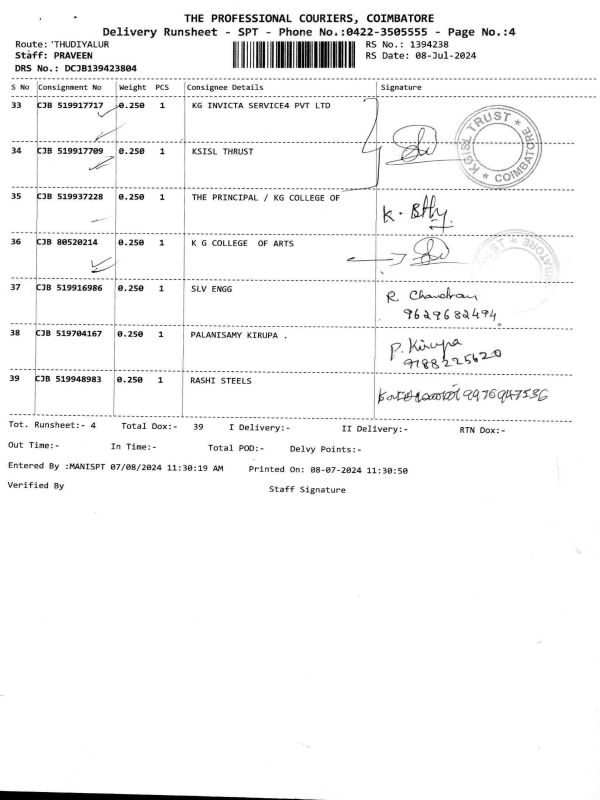 THE PROFESSIONAL COURIERS, COIMBATORE
Delivery Runsheet - SPT - Phone No.:0422-3505555 - Page No.:4
Route: 'THUDIYALUR RS No.: 1394238
Staff: PRAVEEN RS Date: 08-Jul-2024
DRS No.: DCJB139423804
S No Consignment No Weight PCS Consignee Details Signature
33 CJB 519917717 0.250 1 KG INVICTA SERVICE4 PVT LTD
KGISL TRUST * COIMBATORE *
34 CJB 519917709 0.250 1 KSISL THRUST
35 CJB 519937228 0.250 1 THE PRINCIPAL / KG COLLEGE OF
K.
36 CJB 80520214 0.250 1 K G COLLEGE OF ARTS
TRUST * COIMBATORE
37 CJB 519916986 0.250 1 SLV ENGG R. Chandran
9629682494
38 CJB 519704167 0.250 1 PALANISAMY KIRUPA . P. Kirupa
9788225620
39 CJB 519948983 0.250 1 RASHI STEELS 9976947536
Tot. Runsheet:- 4 Total Dox:- 39 I Delivery:- II Delivery:- RTN Dox:-
Out Time:- In Time:- Total POD:- Delvy Points:-
Entered By :MANISPT 07/08/2024 11:30:19 AM Printed On: 08-07-2024 11:30:50
Verified By Staff Signature